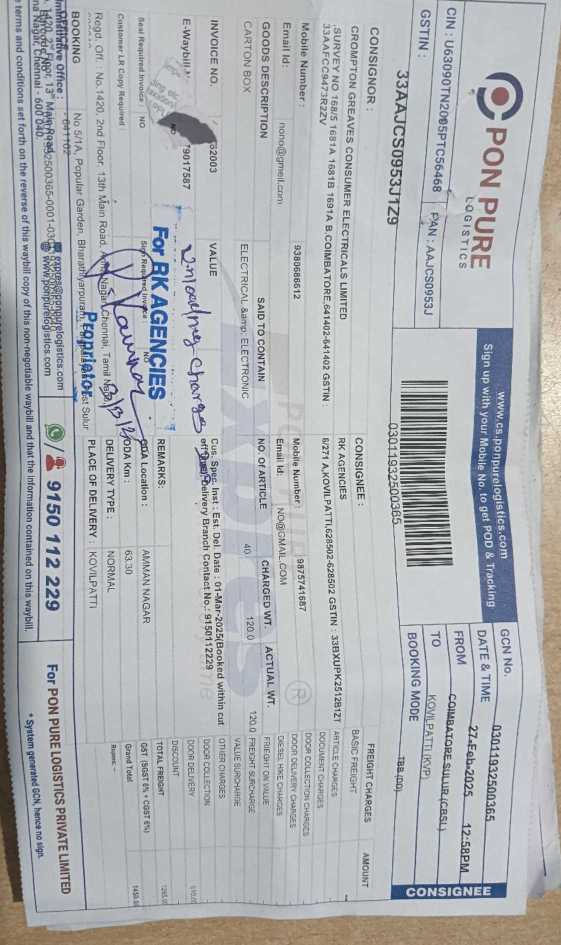 PON PURE
LOGISTICS
CIN : U63090TN2005PTC56468 PAN : AAJCS0953J
GSTIN : 33AAJCS0953J1Z9
www.cs-ponpurelogistics.com
Sign up with your Mobile No. to get POD & Tracking
03011932500365
GCN No. 03011932500365
DATE & TIME 27-Feb-2025 12:58PM
FROM COIMBATORE SULUR (CBSL)
TO KOVILPATTI (KVP)
BOOKING MODE TBB (DD)
CONSIGNEE
CONSIGNOR :
CROMPTON GREAVES CONSUMER ELECTRICALS LIMITED
SURVEY NO 168/5 1681A 1681B 1691A B,COIMBATORE,641402-641402 GSTIN :
33AAFCC9473R2ZV
Mobile Number : 9380686612
Email Id : nono@gmail.com
CONSIGNEE :
RK AGENCIES
6/271 A,KOVILPATTI,628502-628502 GSTIN : 33BXUPK2512B1ZT
Mobile Number : 9875741687
Email Id: NO@GMAIL.COM
GOODS DESCRIPTION SAID TO CONTAIN NO. OF ARTICLE CHARGED WT. ACTUAL WT.
CARTON BOX ELECTRICAL &amp; ELECTRONIC 40 120.0 120.0
FREIGHT CHARGES AMOUNT
BASIC FREIGHT
ARTICLE CHARGES
DOCUMENT CHARGES
DOOR COLLECTION CHARGES
DOOR DELIVERY CHARGES
DIESEL HIKE CHARGES
FREIGHT ON VALUE
FREIGHT SURCHARGE
VALUE SURCHARGE
OTHER CHARGES
DOOR COLLECTION
DOOR DELIVERY
DISCOUNT
TOTAL FREIGHT
GST (SGST 6% + CGST 6%)
Grand Total
INVOICE NO. VALUE
E-Waybill
79017587
Unloading charge
Cus. Spec. Inst : Est. Del. Date : 01-Mar-2025(Booked within cut
Delivery Branch Contact No.: 9150112229
For RK AGENCIES
Proprietor
REMARKS:
Seal Required Invoice NO
Sign Required Invoice NO
Customer LR Copy Required
ODA Location : AMMAN NAGAR
ODA Km : 63.30
DELIVERY TYPE : NORMAL
PLACE OF DELIVERY : KOVILPATTI
Regd. Off. : No.1420, 2nd Floor, 13th Main Road, Anna Nagar, Chennai, Tamil Nadu
BOOKING
No 5/1A, Popular Garden, Bharathiyarpuram,
Sulur
641402
Administrative Office :
1420, 2nd Floor, 13th Main Road,
Nagar, Chennai - 600 040.
www.ponpurelogistics.com
9150 112 229
For PON PURE LOGISTICS PRIVATE LIMITED
* System generated GCN, hence no sign.
terms and conditions set forth on the reverse of this waybill copy of this non-negotiable waybill and that the information contained on this waybill.